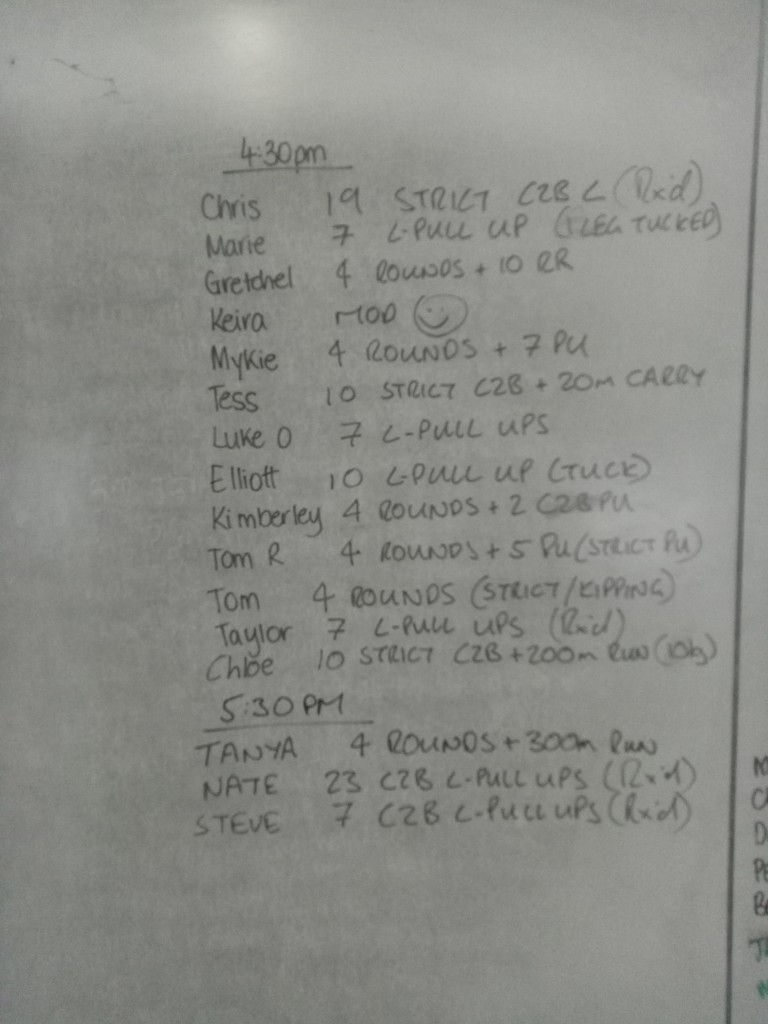 4:30pm
Chris 19 STRICT C2B L (Rx'd)
Marie 7 L-PULL UP (1 LEG TUCKED)
Gretchel 4 ROUNDS + 10 RR
Keira MOD
Mykie 4 ROUNDS + 7 PU
Tess 10 STRICT C2B + 20m CARRY
Luke O 7 L-PULL UPS
Elliott 10 L-PULL UP (TUCK)
Kimberley 4 ROUNDS + 2 C2B PU
Tom R 4 ROUNDS + 5 PU (STRICT PU)
Tom 4 ROUNDS (STRICT/KIPPING)
Taylor 7 L-PULL UPS (Rx'd)
Chloe 10 STRICT C2B + 200m RUN
5:30PM
TANYA 4 ROUNDS + 300m RUN
NATE 23 C2B L-PULL UPS (Rx'd)
STEVE 7 C2B L-PULL UPS (Rx'd)